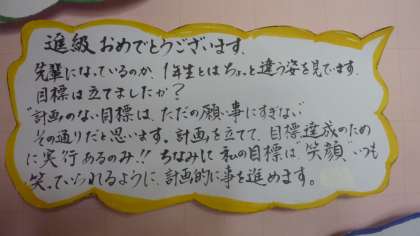 進級おめでとうございます。
先輩になっているのか、1年生とはちょっと違う姿を見ています。
目標は立てましたか？
"計画のない目標は、ただの願い事にすぎない"
その通りだと思います。計画を立てて、目標達成のため
に実行あるのみ!! ちなみに私の目標は"笑顔"いつも
笑っていられるように、計画的に事を進めます。